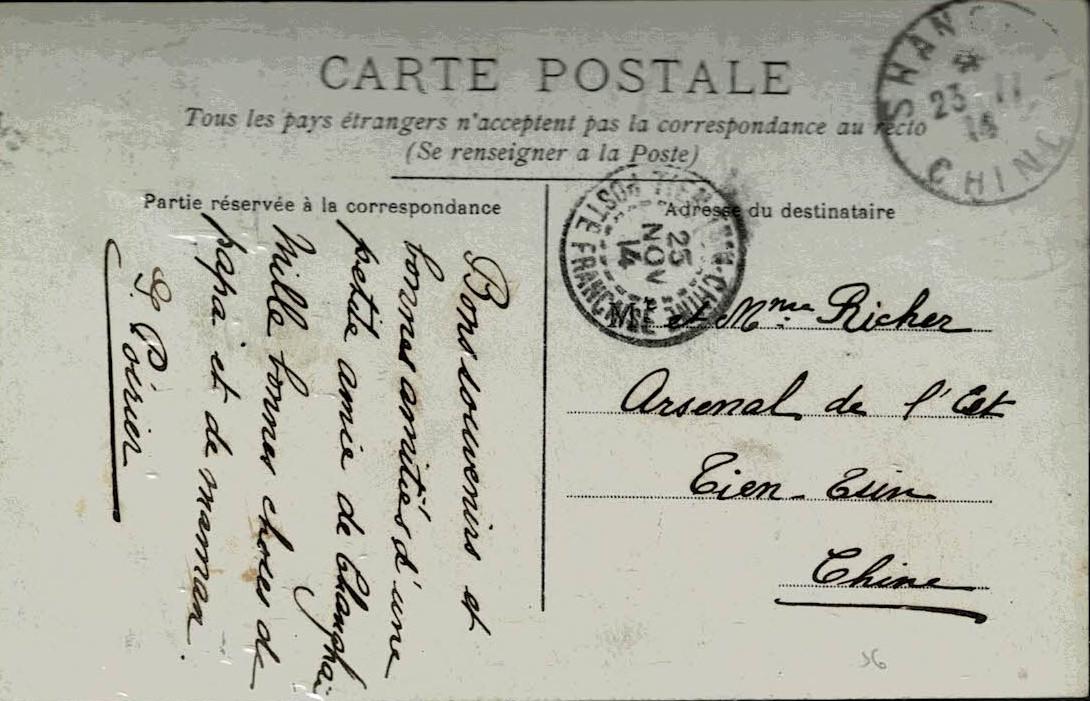 CARTE POSTALE
Tous les pays étrangers n'acceptent pas la correspondance au recto
(Se renseigner a la Poste)
Partie réservée à la correspondance
Bons souvenirs et
bonnes amitiés d'une
petite amie de Changhaï
Mille bonnes choses de
papa et de maman.
G. Poirier
Adresse du destinataire
Mr et Mme Richer
Arsenal de l'Est
Tien-Tsin
Chine
SHAN
23 11
14
CHINE
TIEN-TSIN-CHINE
25
NOV
14
POSTE FRANÇAISE
36